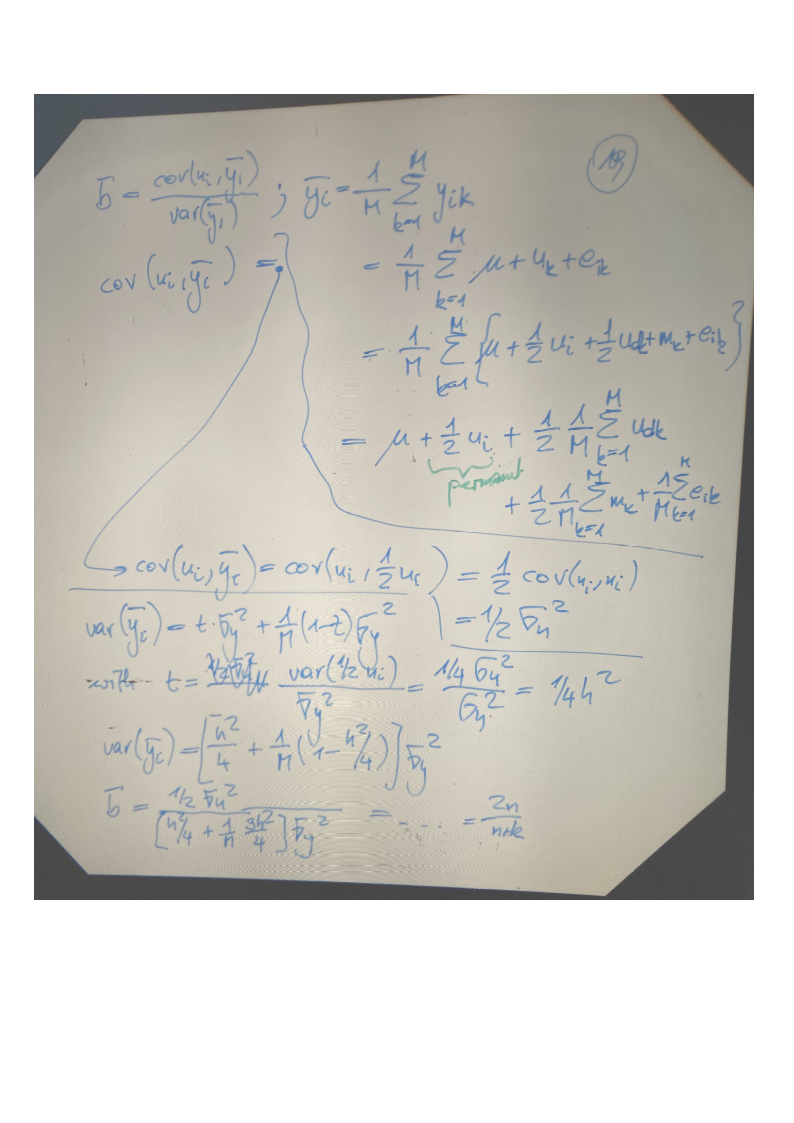 19
b = cov(u_i, ȳ_i) / var(ȳ_i) ; ȳ_i = 1/M Σ_{k=1}^{M} y_ik
cov(u_i, ȳ_i) =
= 1/M Σ_{k=1}^{M} μ + u_k + e_ik
= 1/M Σ_{k=1}^{M} {μ + 1/2 u_i + 1/2 u_dk + m_k + e_ik}
= μ + 1/2 u_i + 1/2 1/M Σ_{k=1}^{M} u_dk
permanent
+ 1/2 1/M Σ_{k=1}^{M} m_k + 1/M Σ_{k=1}^{M} e_ik
→ cov(u_i, ȳ_i) = cov(u_i, 1/2 u_i) = 1/2 cov(u_i, u_i)
= 1/2 σ_u²
var(ȳ_i) = t · σ_y² + 1/M (1-t) σ_y²
with t = var(1/2 u_i) / σ_y² = 1/4 σ_u² / σ_y² = 1/4 h²
var(ȳ_i) = [h²/4 + 1/M (1 - h²/4)] σ_y²
b = 1/2 σ_u² / [h²/4 + 1/n 3h²/4] σ_y² = .... = 2n / n+k